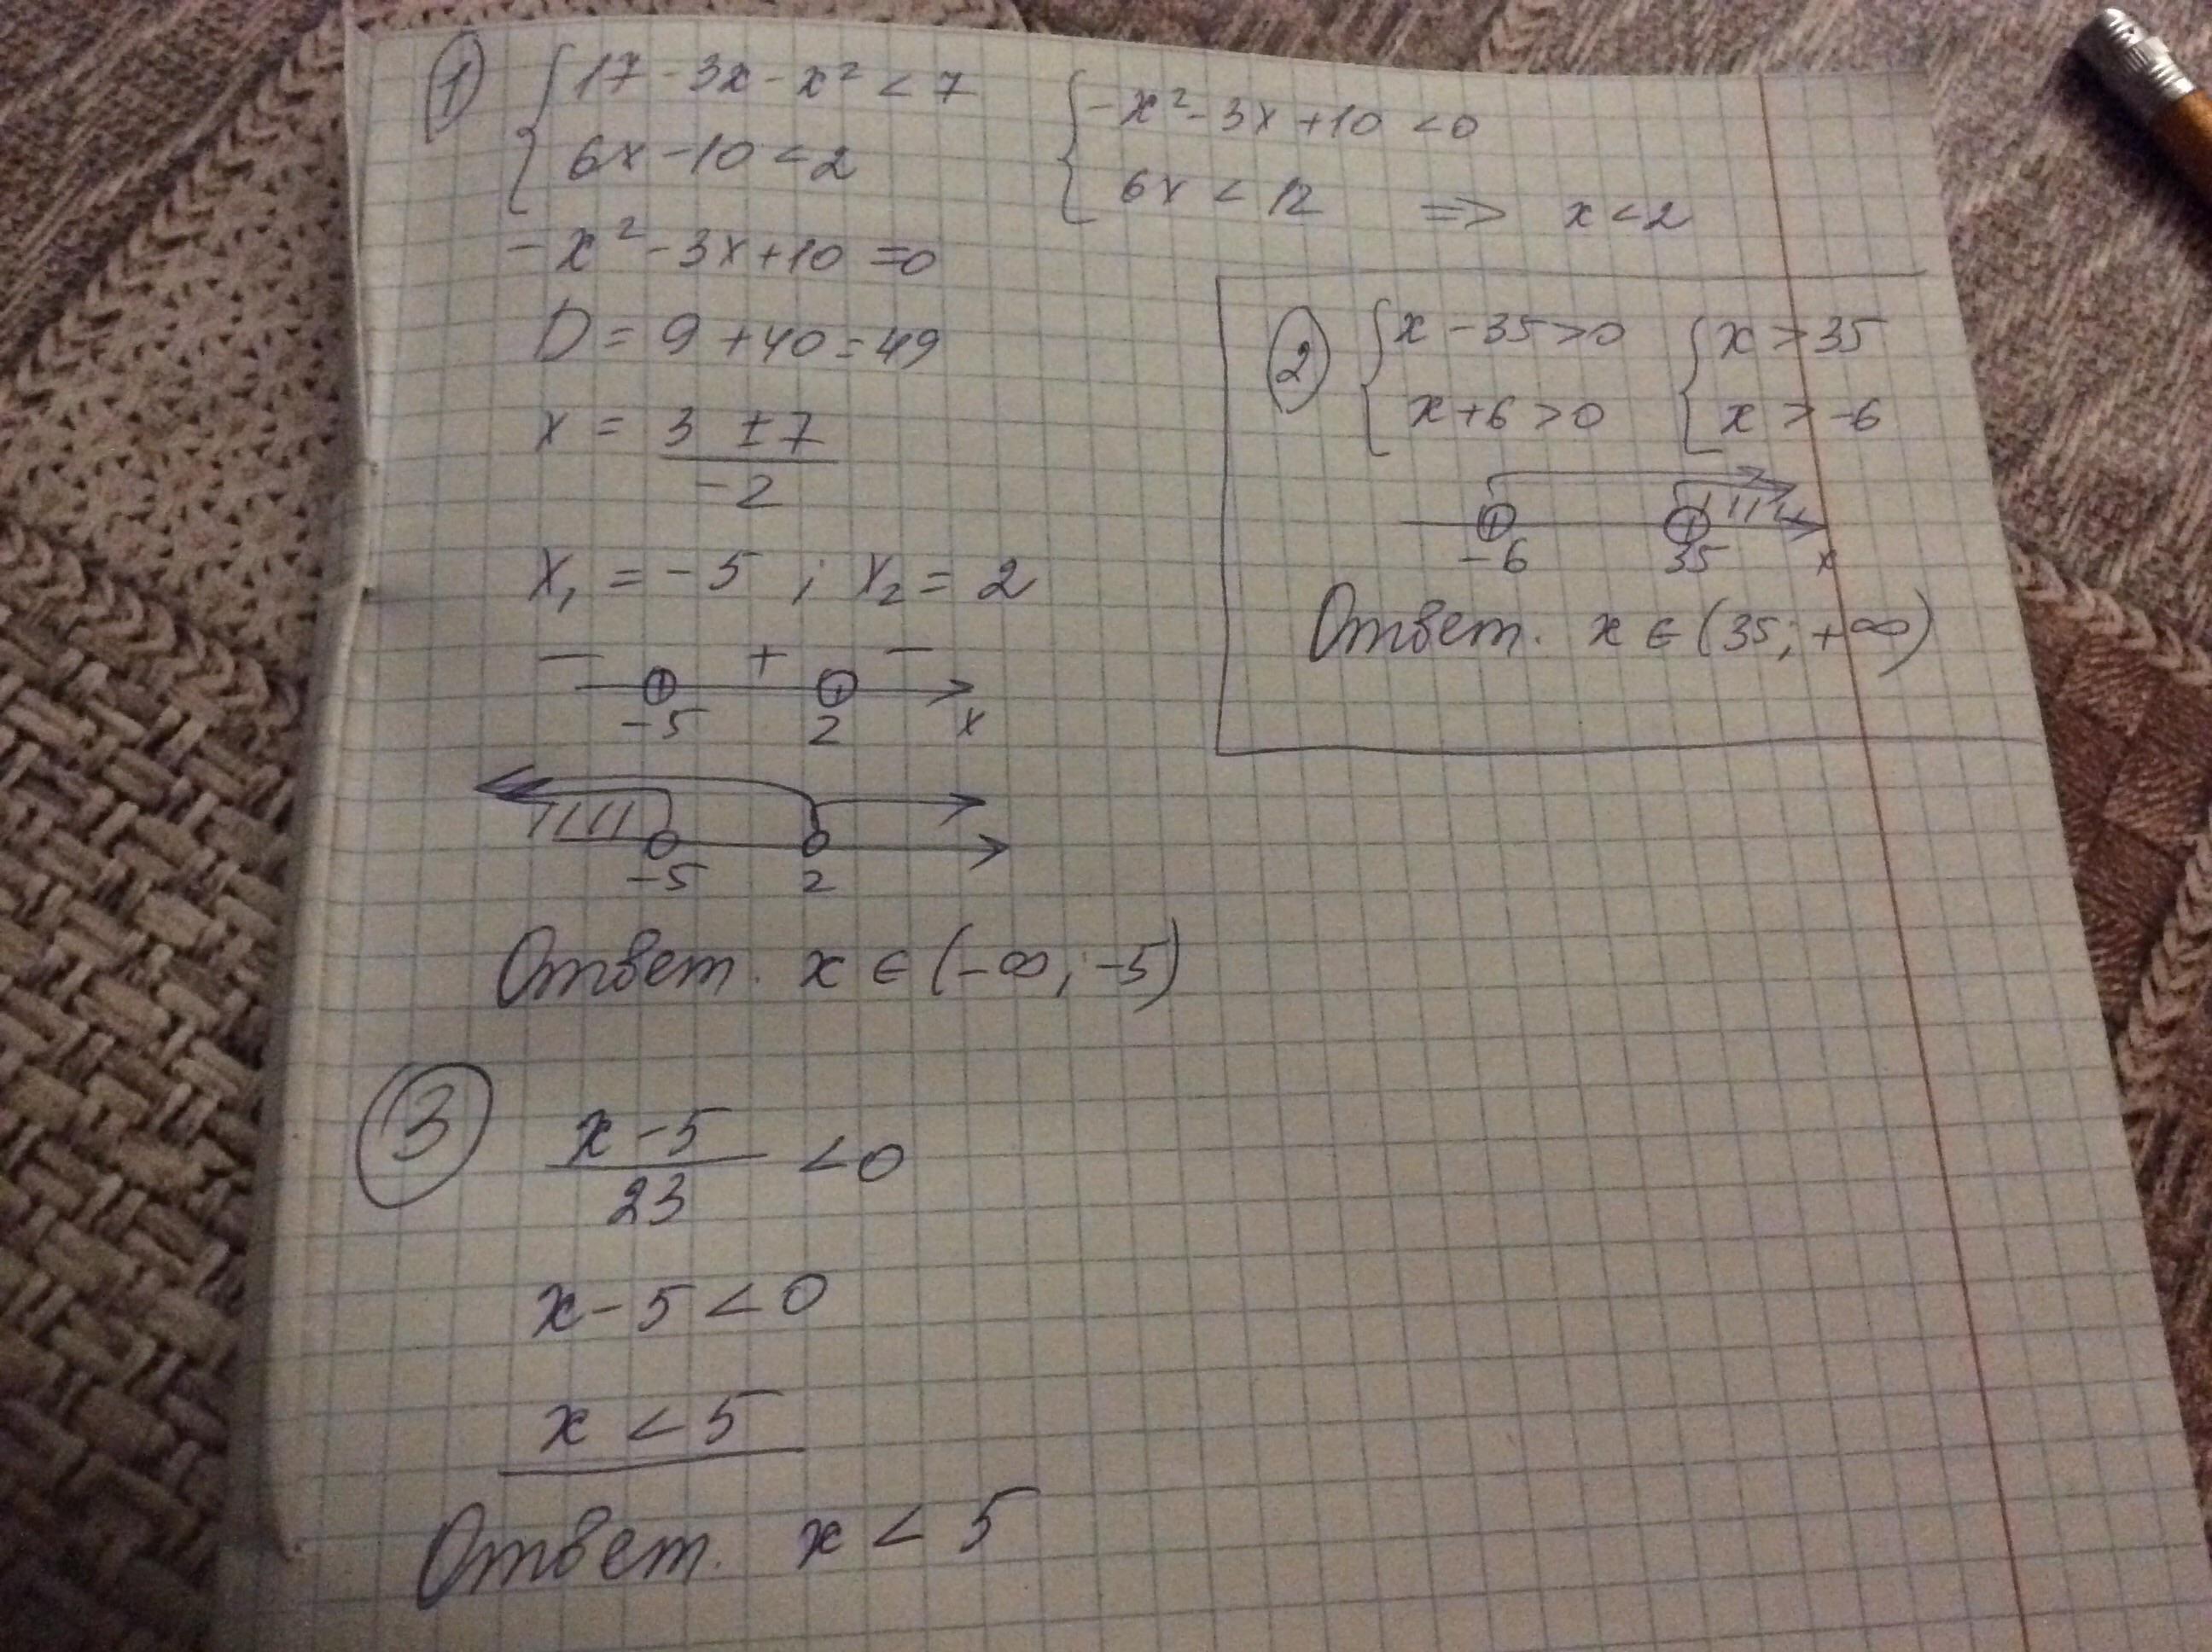 1 { 17 - 3x - x² < 7
6x - 10 < 2
{ -x² - 3x + 10 < 0
6x < 12 => x < 2
-x² - 3x + 10 = 0
D = 9 + 40 = 49
x = 3 ± 7
-2
x₁ = -5 ; x₂ = 2
— + —
-5 2 x
-5 2
Ответ. x ∈ (-∞; -5)
2 { x - 35 > 0 { x > 35
x + 6 > 0 x > -6
-6 35 x
Ответ. x ∈ (35; +∞)
3 x - 5
23 < 0
x - 5 < 0
x < 5
Ответ. x < 5